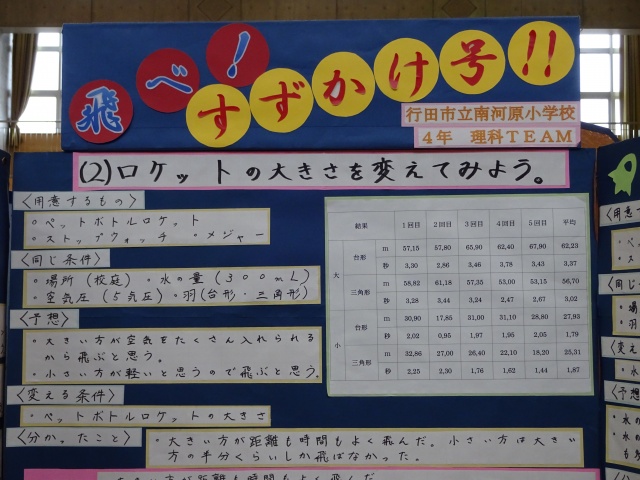 飛べ!
すずかけ号!!
行田市立南河原小学校
4年 理科TEAM
(2)ロケットの大きさを変えてみよう。
〈用意するもの〉
・ペットボトルロケット
・ストップウォッチ ・メジャー
〈同じ条件〉
・場所(校庭)・水の量(300mL)
・空気圧(5気圧)・羽(台形 三角形)
〈予想〉
・大きい方が空気をたくさん入れられる
から飛ぶと思う。
・小さい方が軽いと思うので飛ぶと思う。
〈変える条件〉
・ペットボトルロケットの大きさ
〈分かったこと〉
・大きい方が距離も時間もよく飛んだ。小さい方は大きい
方の半分くらいしか飛ばなかった。
結果 1回目 2回目 3回目 4回目 5回目 平均
大 台形 m 57,15 57,80 65,90 62,40 67,90 62,23
秒 3,30 2,86 3,46 3,78 3,43 3,37
三角形 m 58,82 61,18 57,35 53,00 53,15 56,70
秒 3,28 3,44 3,24 2,47 2,67 3,02
小 台形 m 30,90 17,85 31,00 31,10 28,80 27,93
秒 2,02 0,95 1,97 1,95 2,05 1,79
三角形 m 32,86 27,00 26,40 22,10 18,20 25,31
秒 2,25 2,30 1,76 1,62 1,44 1,87